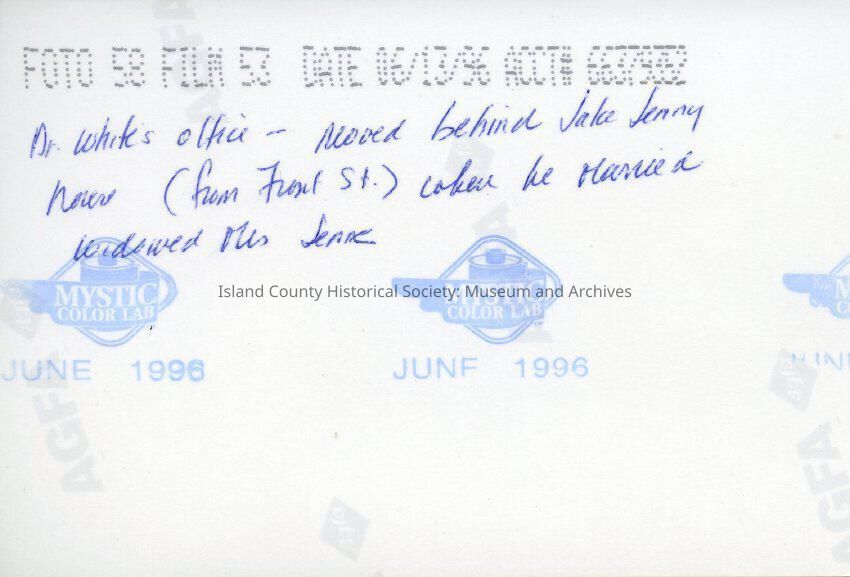 FOTO 58 FILM 57 DATE 06/13/96 ACCTN
Dr. White's office – Moved behind Jake Jenny
house (from Front St.) when he married
widowed Mrs Jenne
MYSTIC COLOR LAB
MYSTIC COLOR LAB
M
Island County Historical Society: Museum and Archives
JUNE 1996
JUNE 1996
JUN
AGFA
AGFA